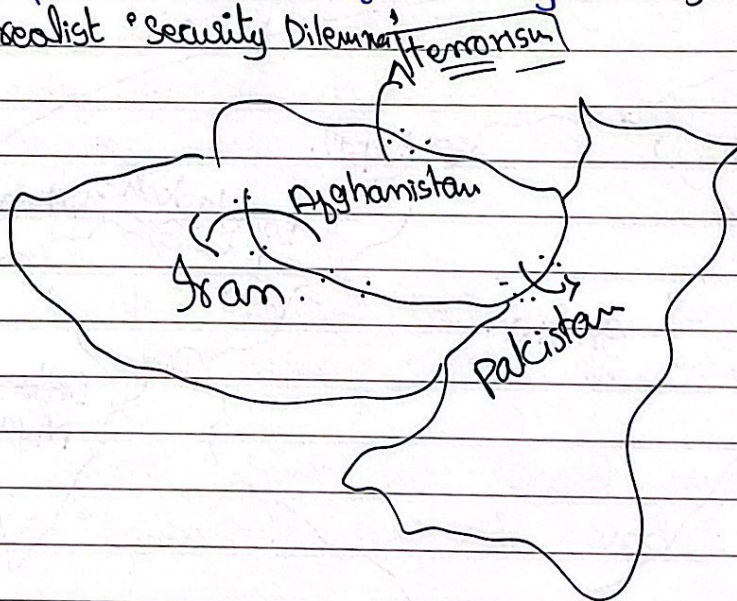 realist 'Security Dilemma' terrorism
Afghanistan
Iran.
Pakistan